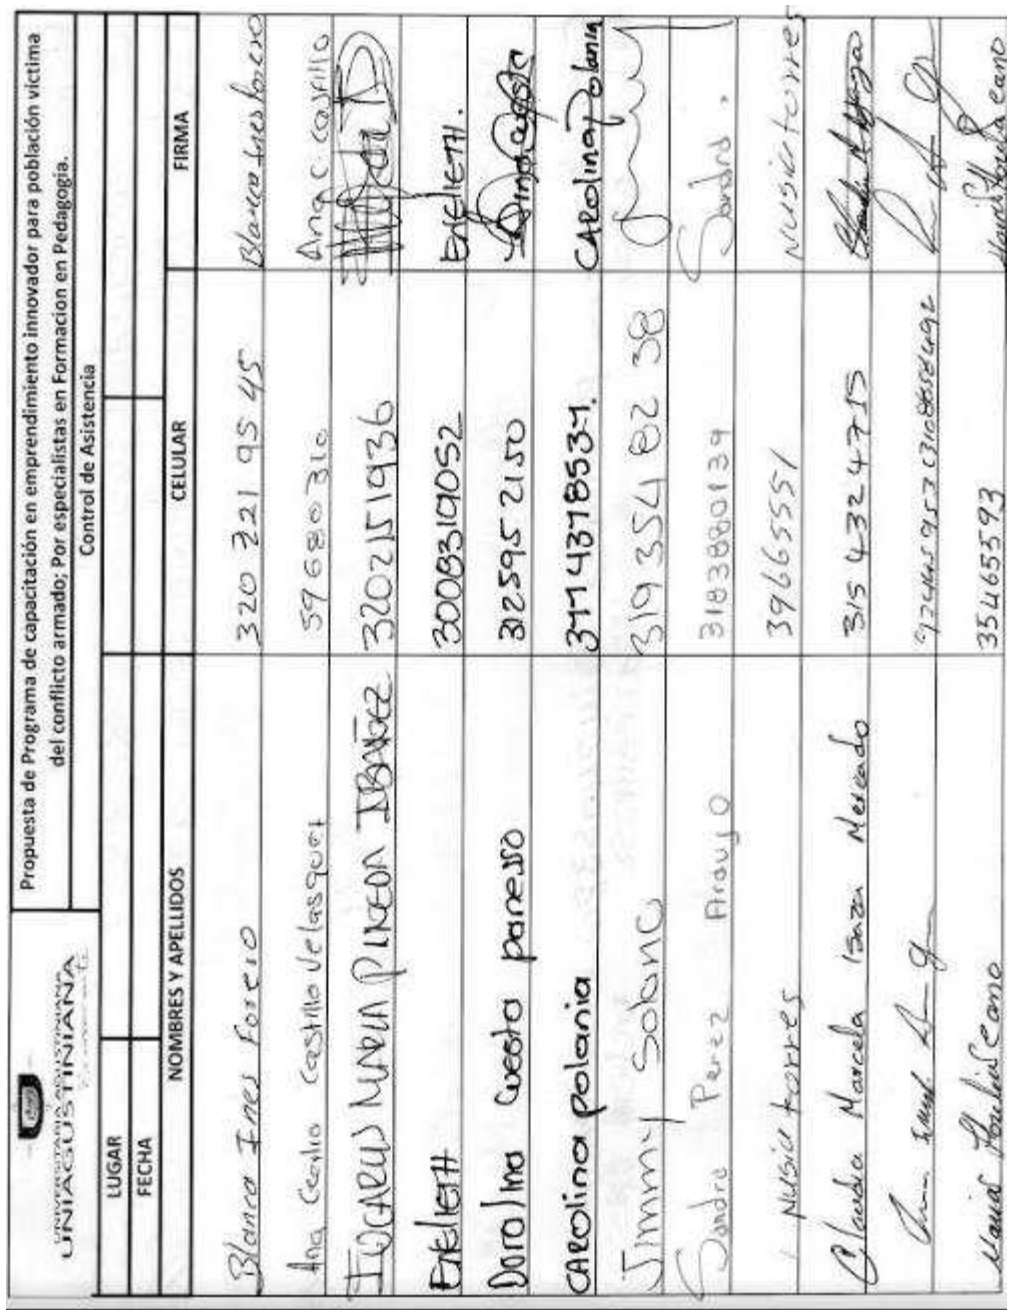 UNIVERSITARIA AGUSTINIANA
UNIAGUSTINIANA
Propuesta de Programa de capacitación en emprendimiento innovador para población victima
del conflicto armado; Por especialistas en Formacion en Pedagogia.
Control de Asistencia
LUGAR
FECHA
NOMBRES Y APELLIDOS CELULAR FIRMA
Blanca Ines Forero 320 221 95 45 Blanca Ines Forero
Ana Cecilia Castillo Velasquez 59680310 Ana C Castillo
MARIA PINEDA IBAÑEZ 3202151936
Enelieth 3008319052 Enelieth.
Doralina Cuesta panesso 3125952150
CARolina polania 3114378534. CARolina Polania
Jimmy Solano 319 354 82 38
Sandra Perez Araujo 3183880139 Sandra.
Nusia torres 3966551 Nusia torres
Claudia Marcela Isaza Mercado 315 4324715
354655593